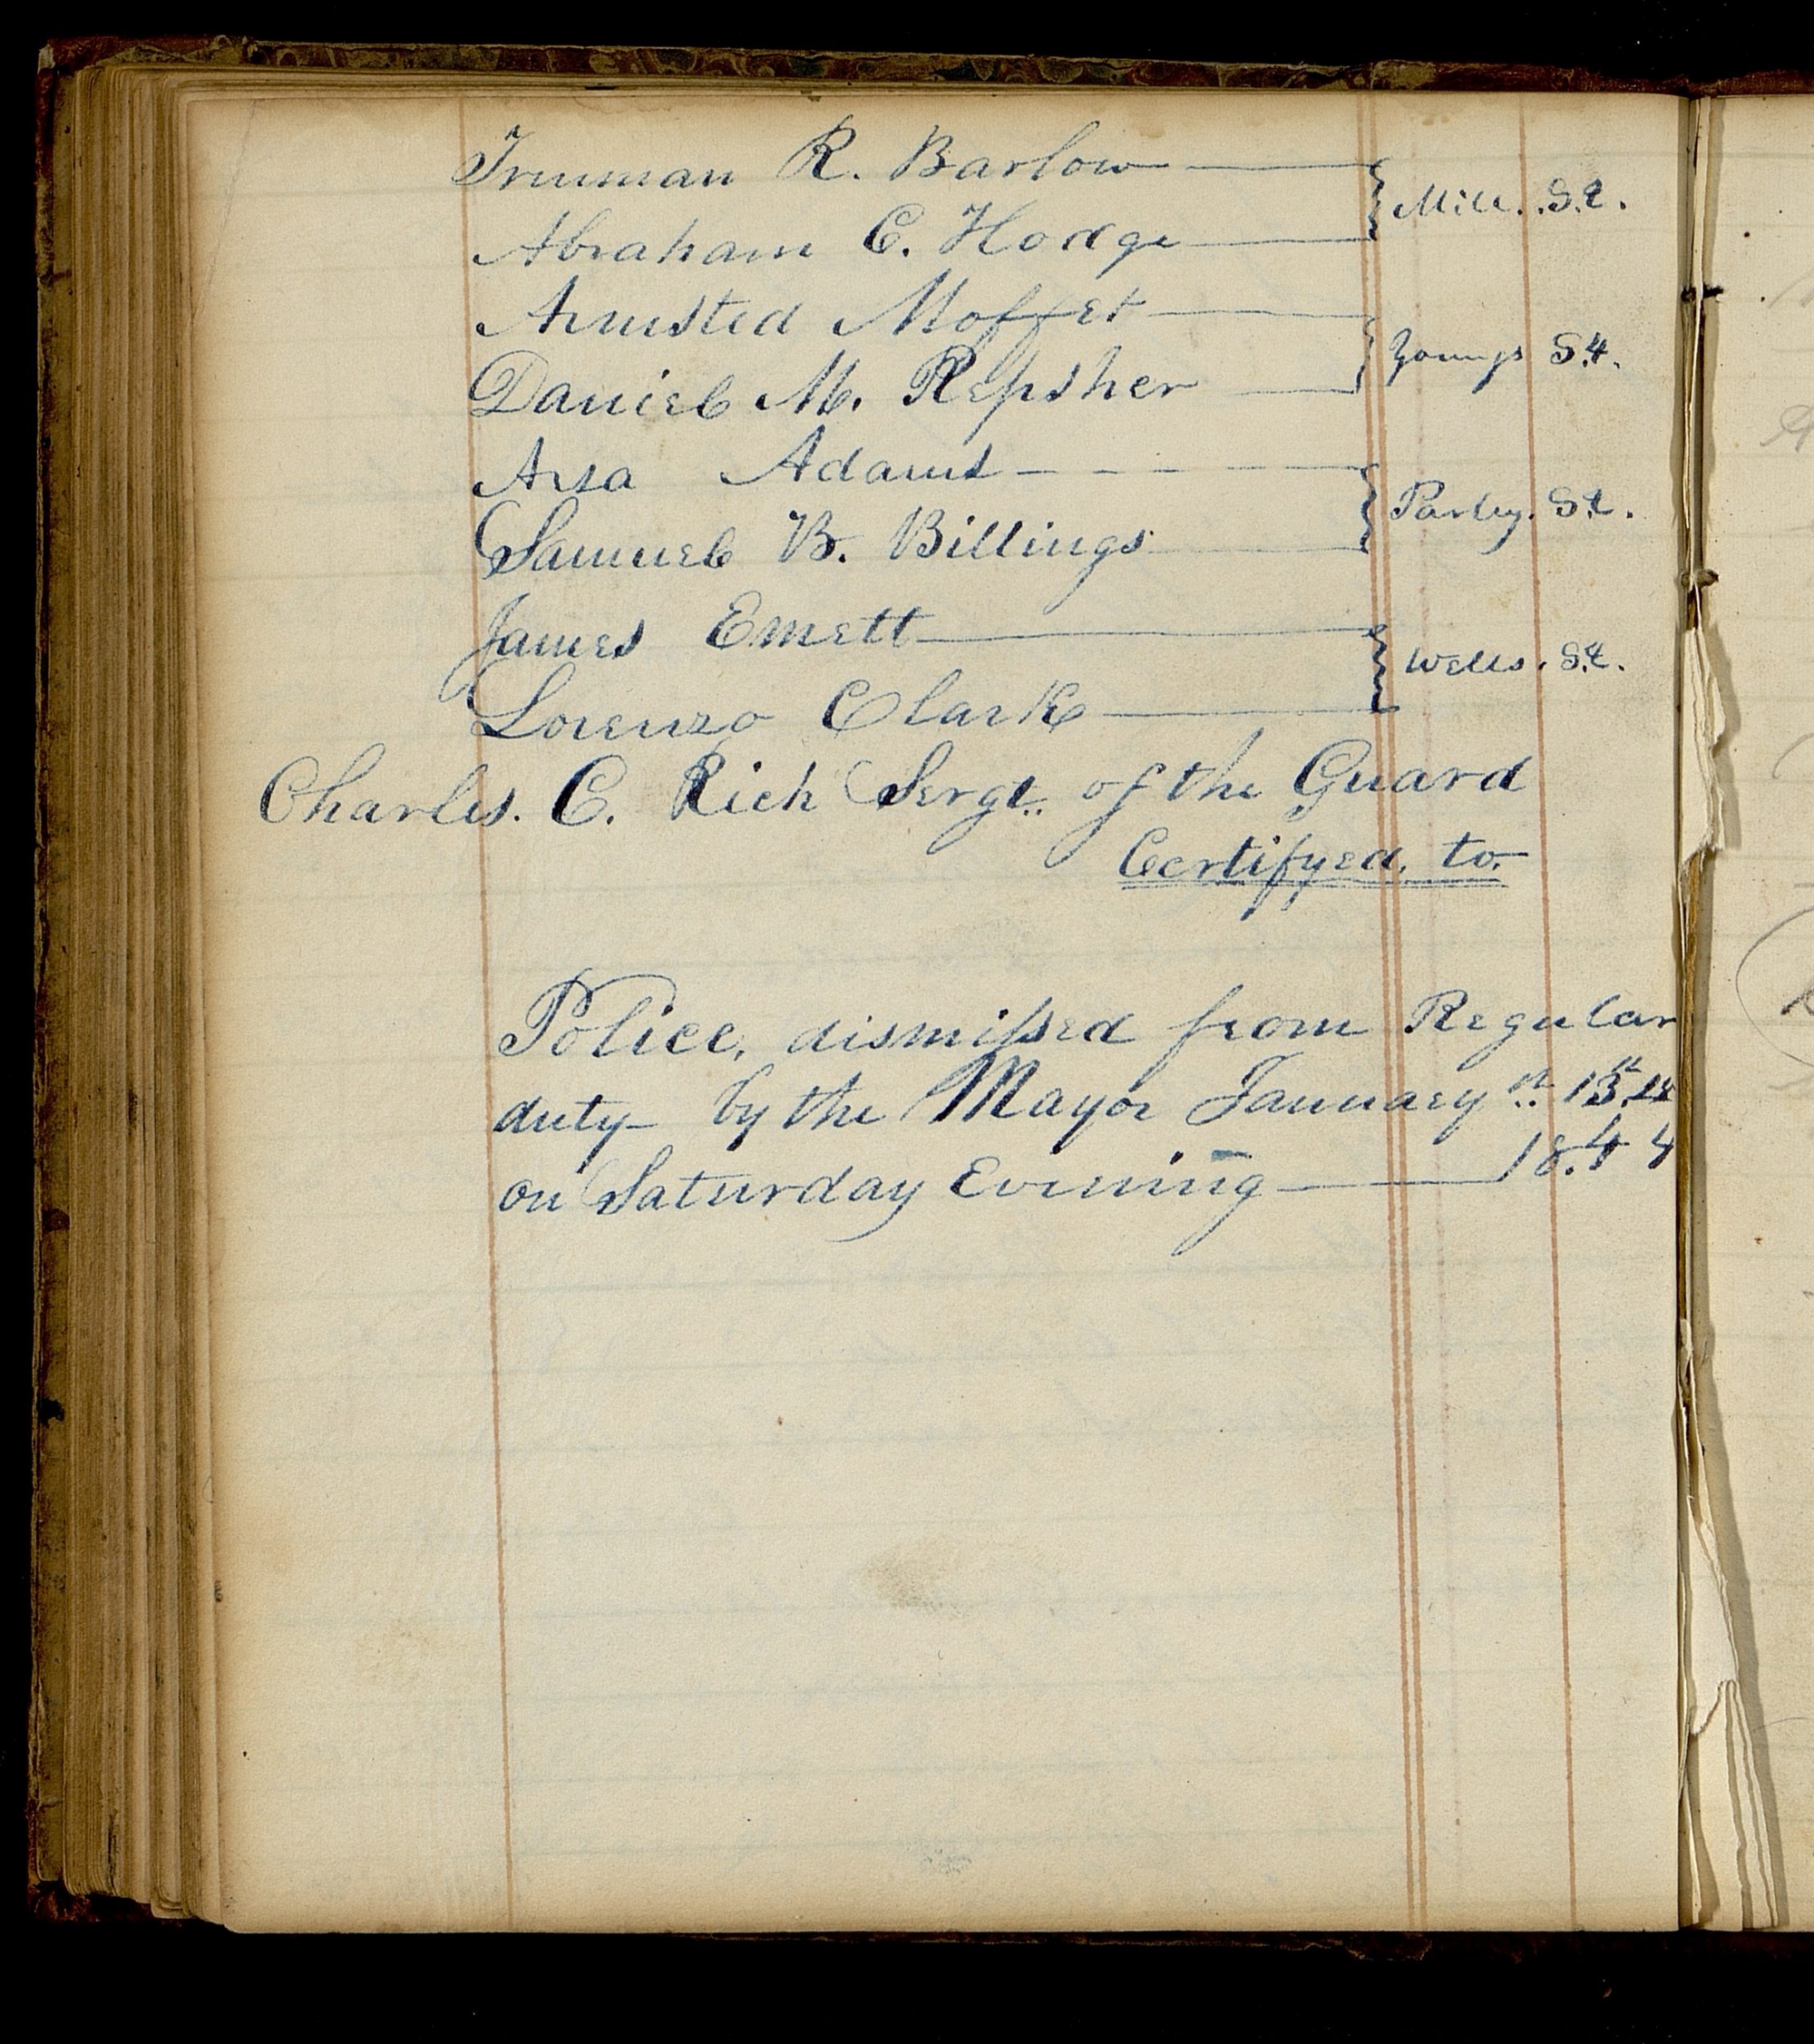 Truman R. Barlow
Mill. St.
Abraham C. Hodge
Armsted Moffet
Youngs St.
Daniel M. Repsher
Asa Adams
Parley. St.
Samuel B. Billings
James Emett
Wells. St.
Lorenzo Clark
Charles. C. Rich Sergt. of the Guard
Certifyed. to.
Police, dismissed from Regular
duty by the Mayor January 13
on Saturday Evening 1844